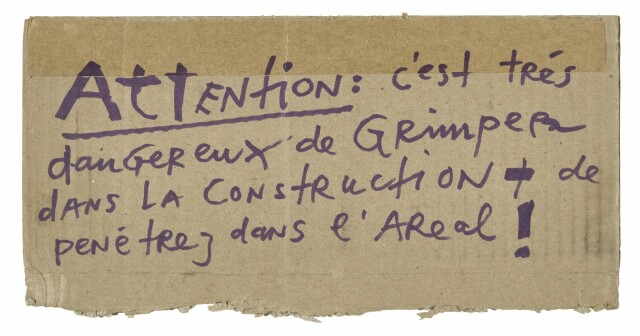 Attention: c'est trés
dangereux de Grimper
dans la construction + de
penétrez dans l'Areal!